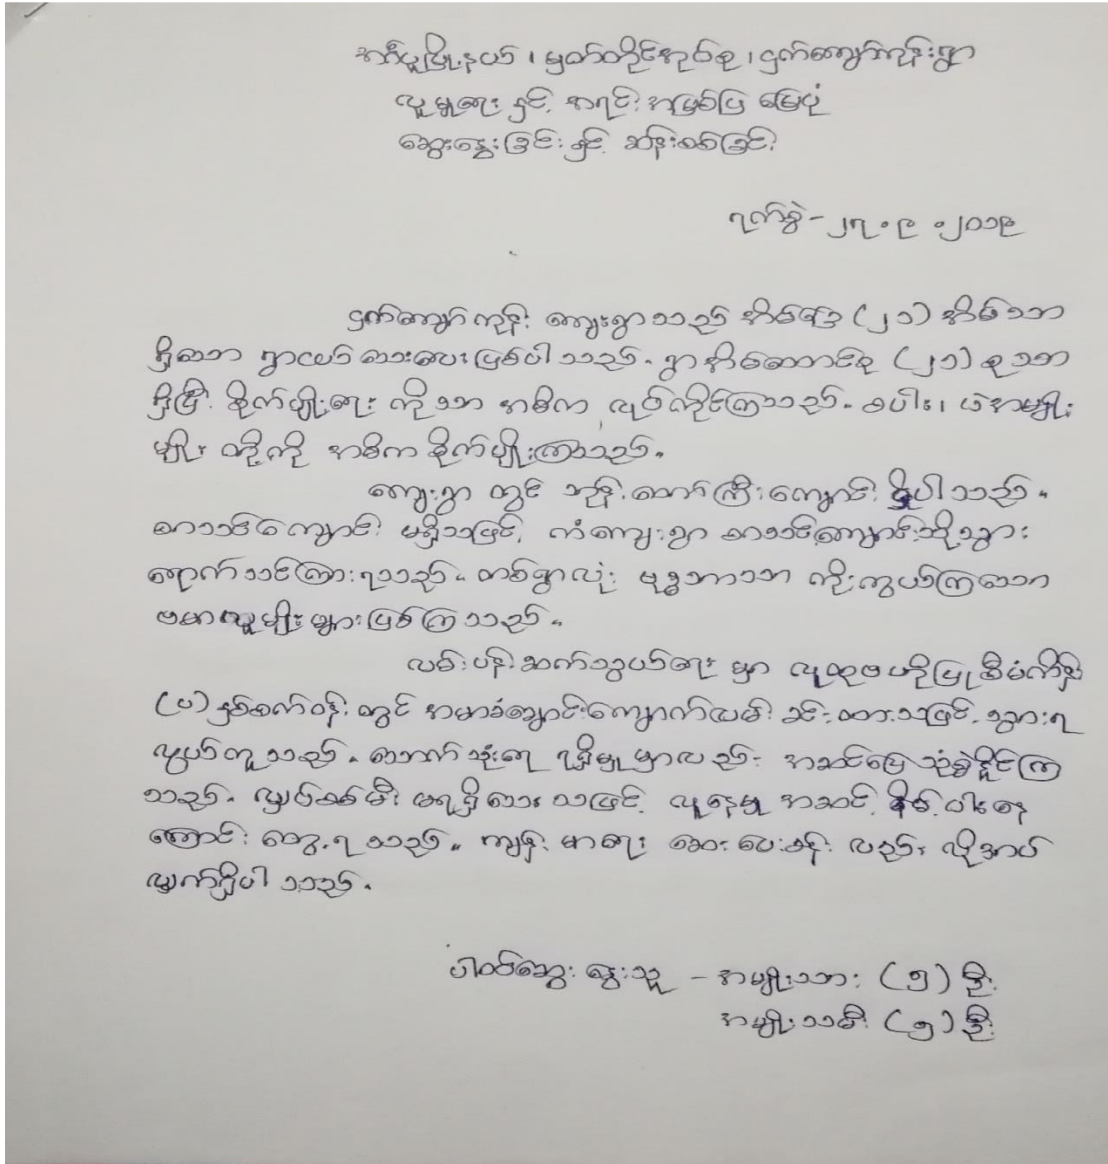 အင်္ဂပူမြို့နယ်၊ မြွတ်တိုင်အုပ်စု၊ ငှက်ကျော်ကုန်းရွာ
လူမှုရေး နှင့် အရင်းအမြစ်ပြ မြေပုံ
ဆွေးနွေးခြင်း နှင့် ဆန်းစစ်ခြင်း
ရက်စွဲ - ၂၇.၉.၂၀၁၉
ငှက်ကျော်ကုန်း ကျေးရွာသည် အိမ်ခြေ (၂၁) အိမ်သာ
ရှိသော ရွာငယ်လေးဖြစ်ပါသည်။ ရွာအိမ်ထောင်စု (၂၁) စုသာ
ရှိပြီး စိုက်ပျိုးရေး ကိုသာ အဓိက လုပ်ကိုင်ကြသည်။ စပါး၊ ပဲအမျိုး
မျိုး တို့ကို အဓိက စိုက်ပျိုးကြသည်။
ကျေးရွာ တွင် ဘုန်းတော်ကြီးကျောင်း ရှိပါသည်။
စာသင်ကျောင်း မရှိသဖြင့် ကံကျေးရွာ စာသင်ကျောင်းသို့သွား
ရောက်သင်ကြားရသည်။ တစ်ရွာလုံး ဗုဒ္ဓဘာသာ ကိုးကွယ်ကြသော
ဗမာလူမျိုးများဖြစ်ကြသည်။
လမ်းပန်းဆက်သွယ်ရေး မှာ လူထုဗဟိုပြုစီမံကိန်း
(ပ) နှစ်စက်ဝန်းတွင် အမာခံချောင်းကျောက်လမ်း ခင်းထားသဖြင့် သွားရ
လွယ်ကူသည်။ သောက်သုံးရေ ရရှိမှုမှာလည်း အဆင်ပြေသုံးစွဲနိုင်ကြ
သည်။ လျှပ်စစ်မီး မရရှိသေးသဖြင့် လူနေမှု အဆင့်နိမ့်ပါးနေ
ကြောင်း တွေ့ရသည်။ ကျန်းမာရေး ဆေးပေးခန်း လည်း လိုအပ်
လျှက်ရှိပါသည်။
ပါဝင်ဆွေးနွေးသူ - အမျိုးသား (၅) ဦး
အမျိုးသမီး (၅) ဦး